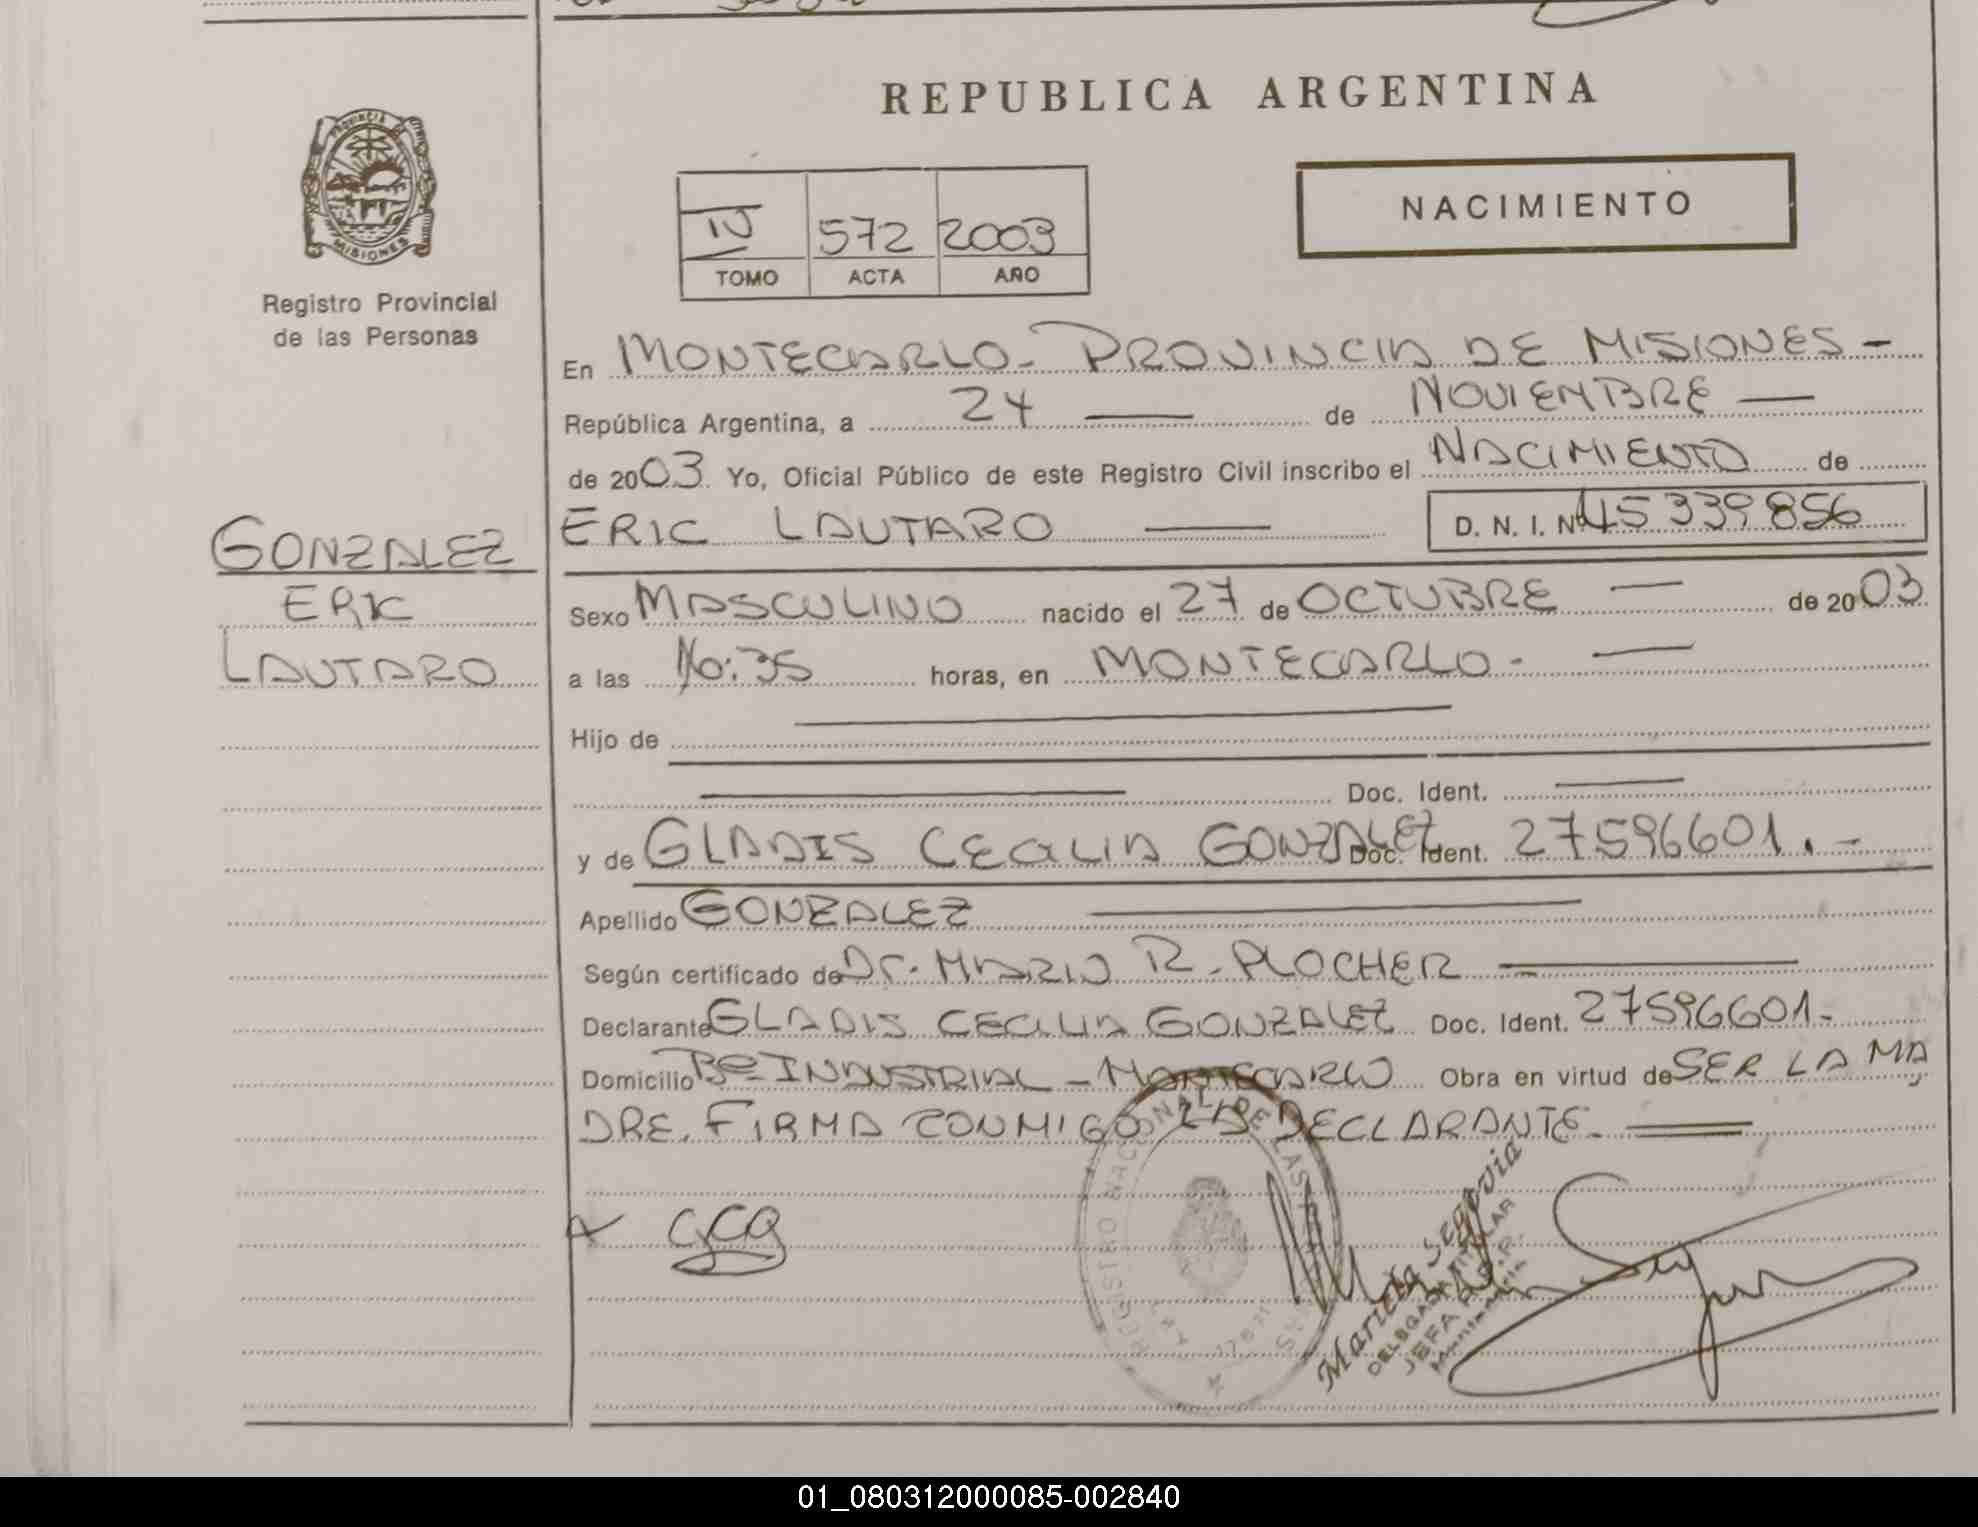 REPUBLICA ARGENTINA
PROVINCIA DE MISIONES
Registro Provincial
de las Personas
IV 572 2003
TOMO ACTA AÑO
NACIMIENTO
En MONTECARLO - PROVINCIA DE MISIONES -
República Argentina, a 24 de NOVIEMBRE
de 2003 Yo, Oficial Público de este Registro Civil inscribo el NACIMIENTO de
ERIC LAUTARO D. N. I. Nº 45339856
GONZALEZ
ERIC
LAUTARO
Sexo MASCULINO nacido el 27 de OCTUBRE de 2003
a las 16:35 horas, en MONTECARLO.-
Hijo de
Doc. Ident.
y de GLADIS CECILIA GONZALEZ Doc. Ident. 27596601.-
Apellido GONZALEZ
Según certificado de Dr. MARIO R. PLOCHER
Declarante GLADIS CECILIA GONZALEZ Doc. Ident. 27596601.-
Domicilio Bº INDUSTRIAL - MONTECARLO Obra en virtud de SER LA MA
DRE. FIRMA CONMIGO LA DECLARANTE.
GCG
REGISTRO NACIONAL DE LAS PERSONAS
Mariela Segovia
DELEGADA TITULAR
JEFA R.P.P.
01_080312000085-002840